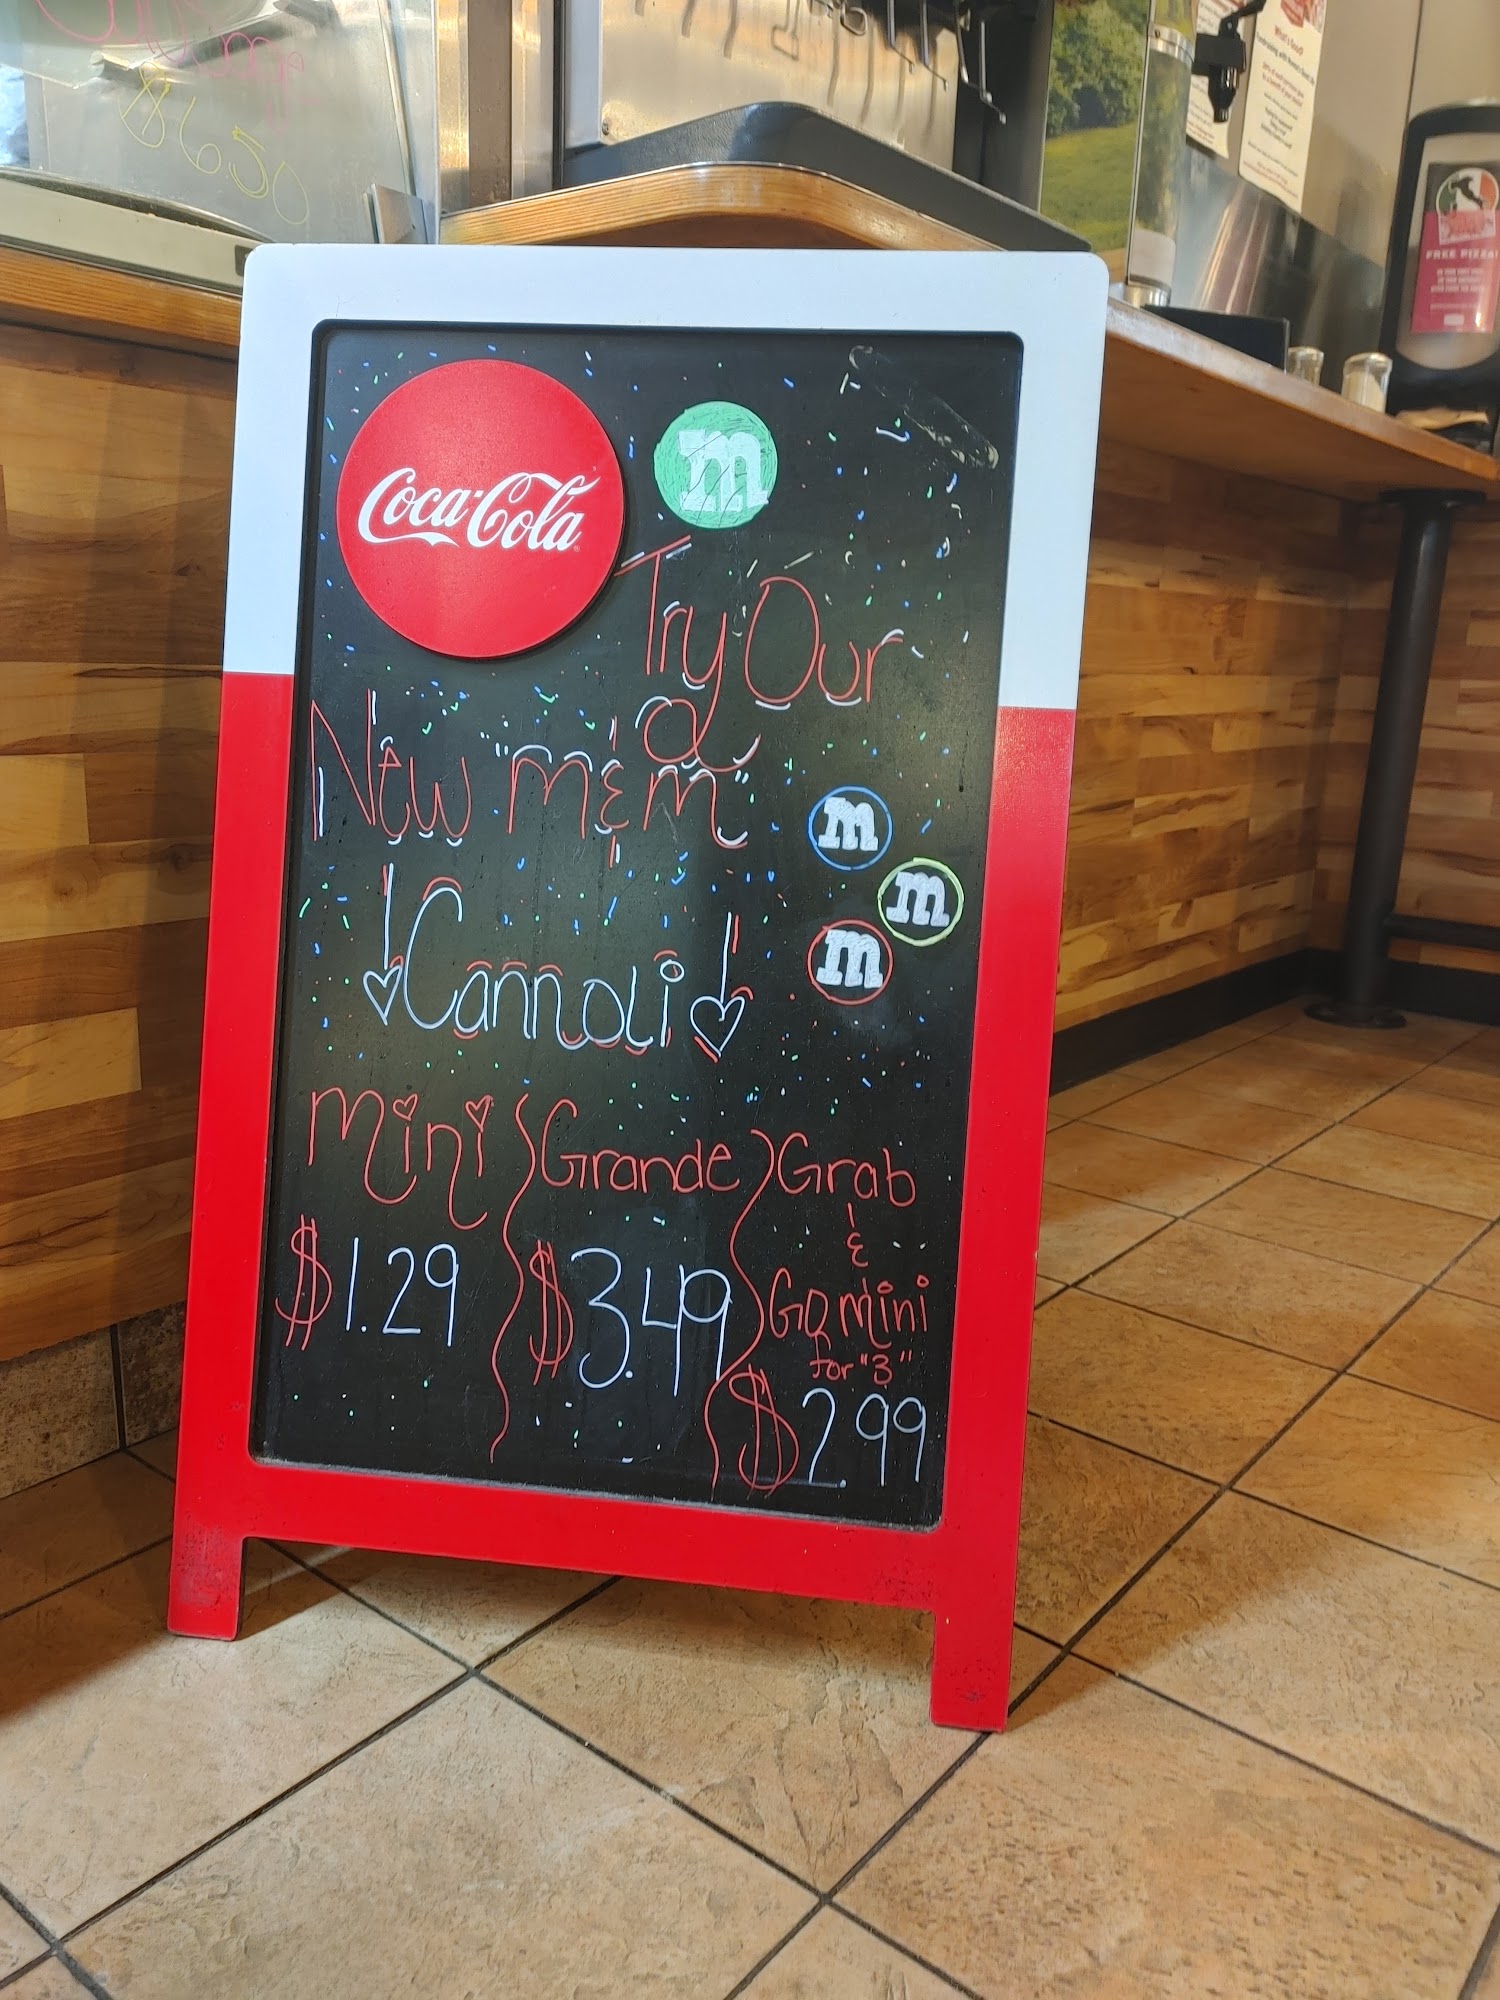 $650
What a Great!
FREE PIZZA!
Coca-Cola
m
Try Our
New "m & m"
m
m
Cannoli
m
Mini
Grande
Grab
&
Go Mini
for "3"
$1.29
$3.49
$2.99